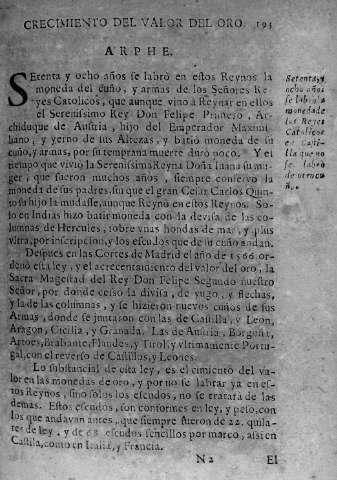 CRECIMIENTO DEL VALOR DEL ORO. 193
ARPHE.
SEtenta y ocho años se labrò en estos Reynos la
moneda del cuño, y armas de los Señores Re-
yes Catolicos, que aunque vino à Reynar en ellos
el Serenissimo Rey Don Felipe Primero, Ar-
chiduque de Austria, hijo del Emperador Maximi-
liano, y yerno de sus Altezas, y batiò moneda de su
cuño, y armas, por su temprana muerte durò poco. Y el
tiempo que viviò la Serenissima Reyna Doña Iuana su mu-
ger, que fueron muchos años, siempre conservò la
moneda de sus padres, sin que el gran Cesar Carlos Quin-
to su hijo la mudasse, aunque Reynò en estos Reynos. So-
lo en Indias hizo batir moneda con la devisa de las co-
lumnas de Hercules, sobre vnas hondas de mar, y plus
vltra, por inscripcion, y los escudos que de su cuño andan.
Despues en las Cortes de Madrid el año de 1566. or-
denò esta ley, y el acrecentamiento del valor del oro, la
Sacra Magestad del Rey Don Felipe Segundo nuestro
Señor, por donde cesso la divisa, de yugo, y flechas,
y la de las columnas, y se hizieron nuevos cuños de sus
Armas, donde se juntaron con las de Castilla, y Leon,
Aragon, Cicilia, y Granada. Las de Austria, Borgoña,
Artoes, Brabante, Flandes, y Tirol, y vltimamente Portu-
gal, con el reverso de Castillos, y Leones.
Lo substancial de esta ley, es el cimiento del va-
lor en las monedas de oro, y por no se labrar ya en es-
tos Reynos, sino solos los escudos, no se tratarà de las
demas. Estos escudos, son conformes en ley, y peso, con
los que andavan antes, que siempre fueron de 22. quila-
tes de ley, y de 68 escudos sencillos por marco, assi en
Castilla, como en Italia, y Francia.
N 2 El
Setenta, y
ocho años
se labrò la
moneda de
los Reyes
Catolicos
en Casti-
lla que no
se labrò
de otro cu
ñ.